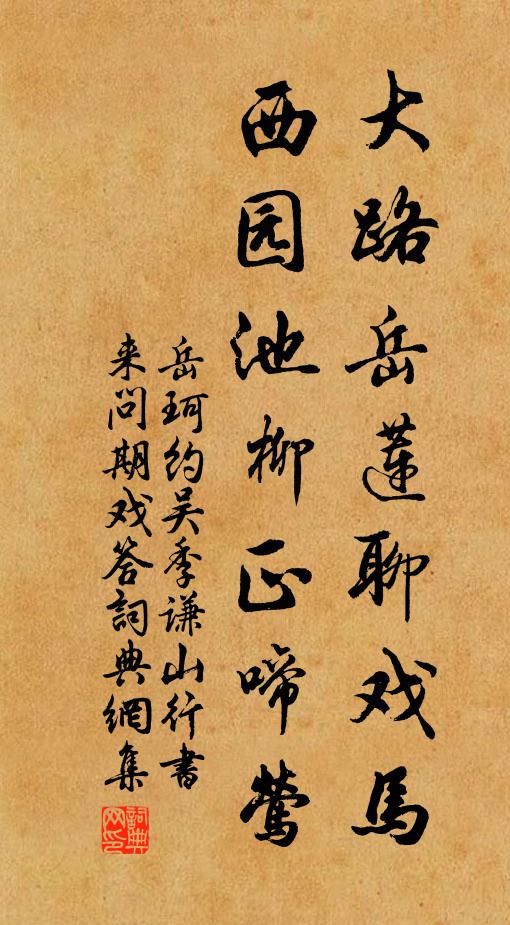 大路岳莲聊戏馬
西园池柳正啼莺
岳珂约吴季谦山行書
来问期戏答詞典網集
詞典
网印